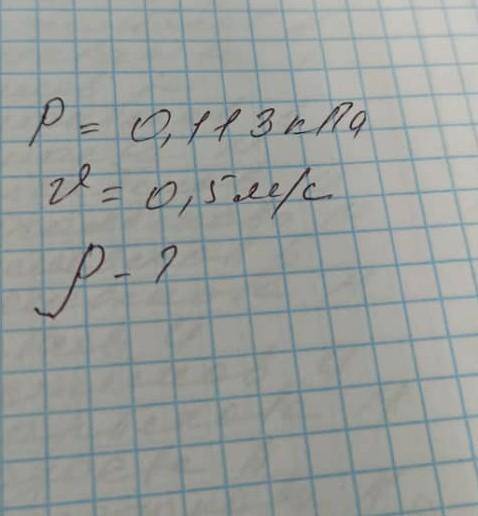 P = 0,113 кПа
υ = 0,5 м/с
ρ - ?